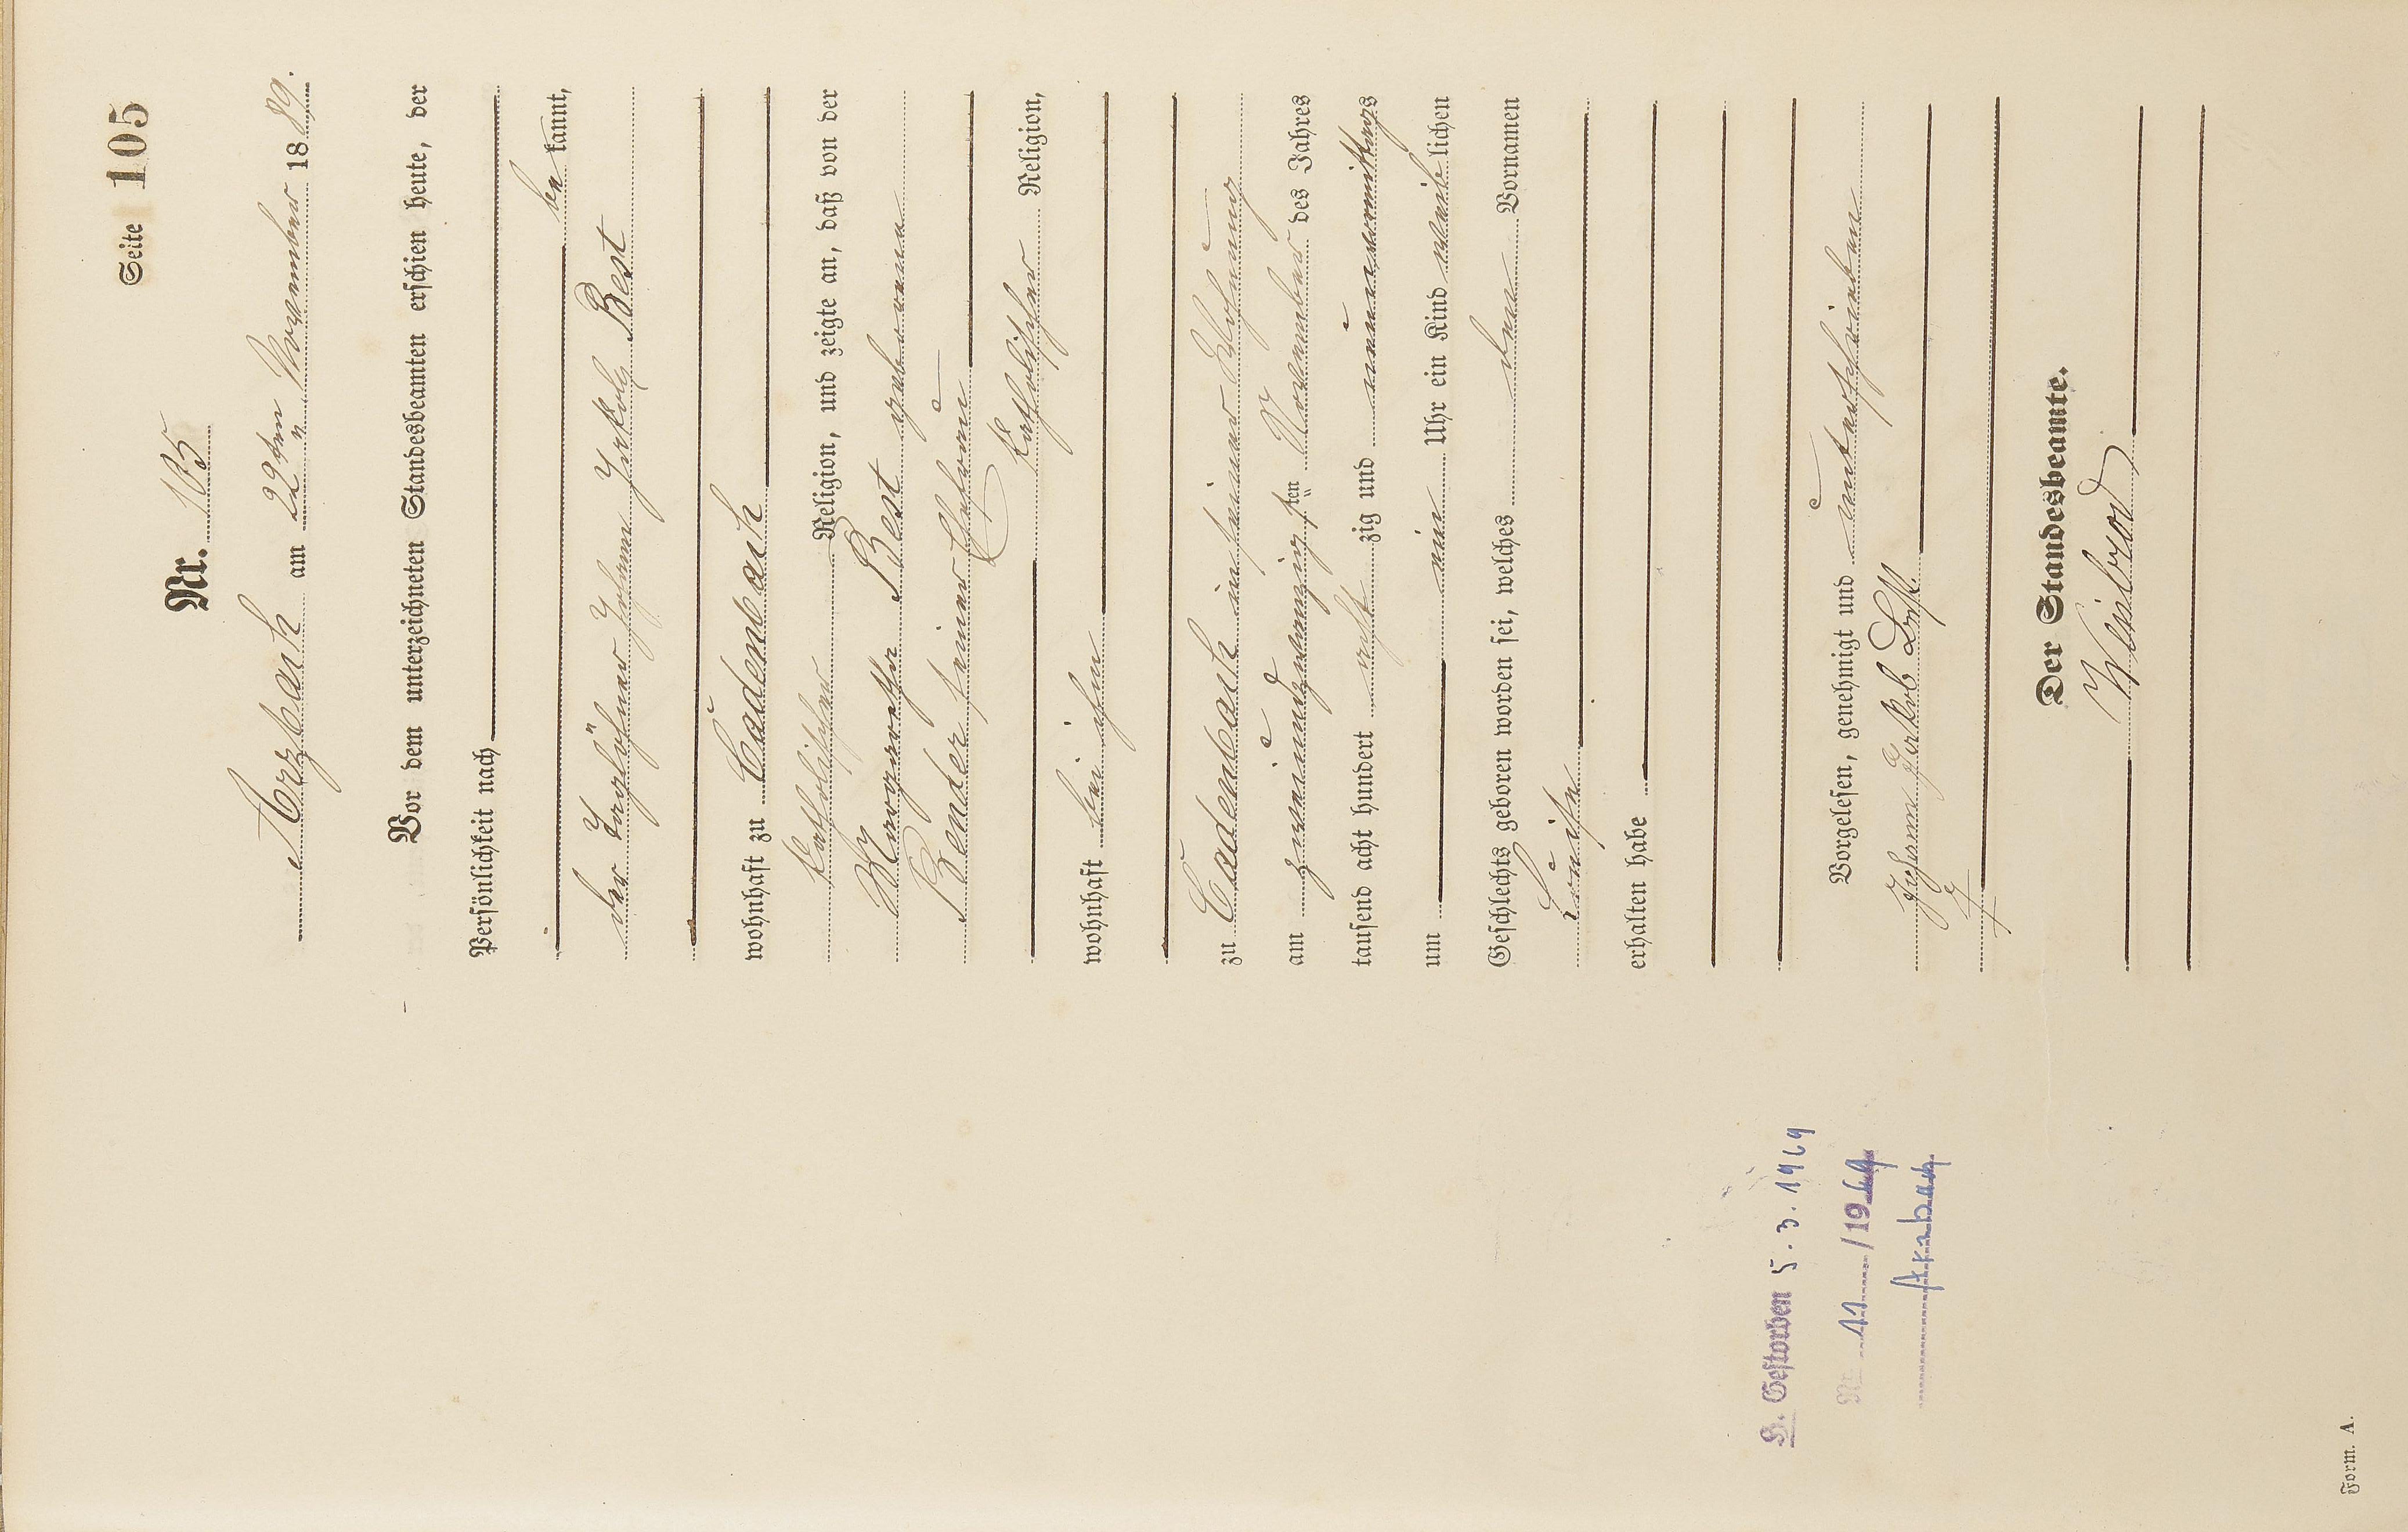 Seite 105
Nr. 105
Arzbach am 22ten November 1889.
Vor dem unterzeichneten Standesbeamten erschien heute, der
Persönlichkeit nach
bekannt,
der Taglöhner Johann Jakob Best
wohnhaft zu Cadenbach
katholischer Religion, und zeigte an, daß von der
Margaretha Best geborenen
Bender seiner Ehefrau
katholischer Religion,
wohnhaft bei ihm
zu Cadenbach in seiner Wohnung
am zweiundzwanzigsten November des Jahres
tausend acht hundert acht zig und neun vormittags
um ein Uhr ein Kind weiblichen
Geschlechts geboren worden sei, welches den Vornamen
Louise
erhalten habe
Vorgelesen, genehmigt und unterschrieben
Johann Jakob Best.
Der Standesbeamte.
Weisbrod
H. Gestorben 5.3.1969
Nr. 11 /1969
Arzbach
Form. A.